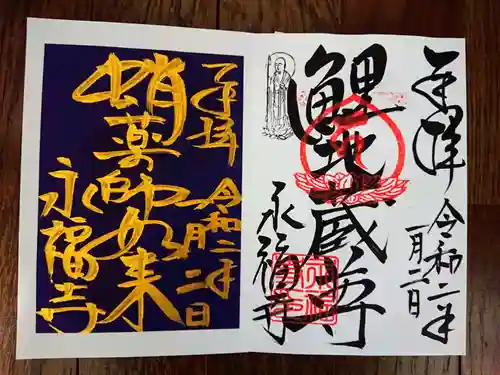 奉拝
令和二年
一月二日
鯉地蔵尊
永福寺
奉拝
令和二年
一月二日
蛸薬師如来
永福寺